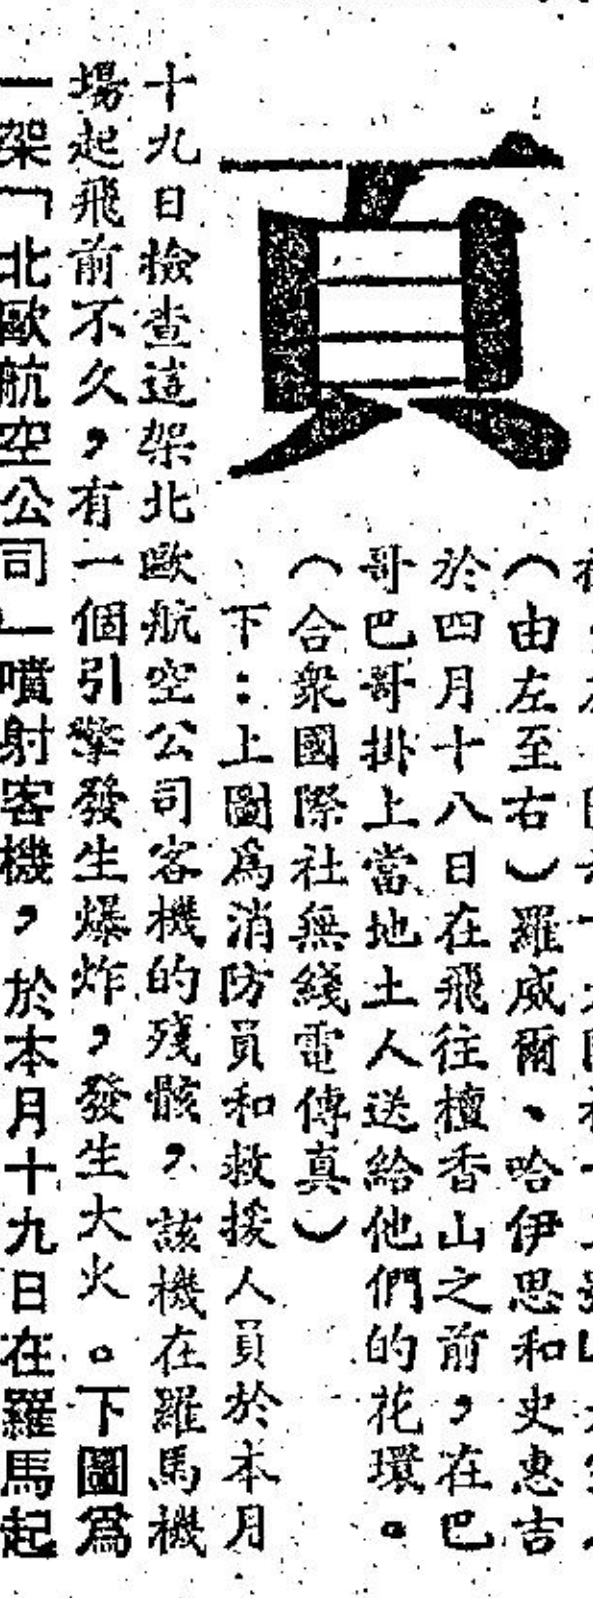 頁
（由左至右）羅威爾、哈伊思和史惠吉
於四月十八日在飛往檀香山之前，在巴
哥巴哥掛上當地土人送給他們的花環。
（合衆國際社無綫電傳眞）
下：上圖爲消防員和救援人員於本月
十九日檢查這架北歐航空公司客機的殘骸，該機在羅馬機
場起飛前不久，有一個引擎發生爆炸，發生大火。下圖爲
一架「北歐航空公司」噴射客機，於本月十九日在羅馬起